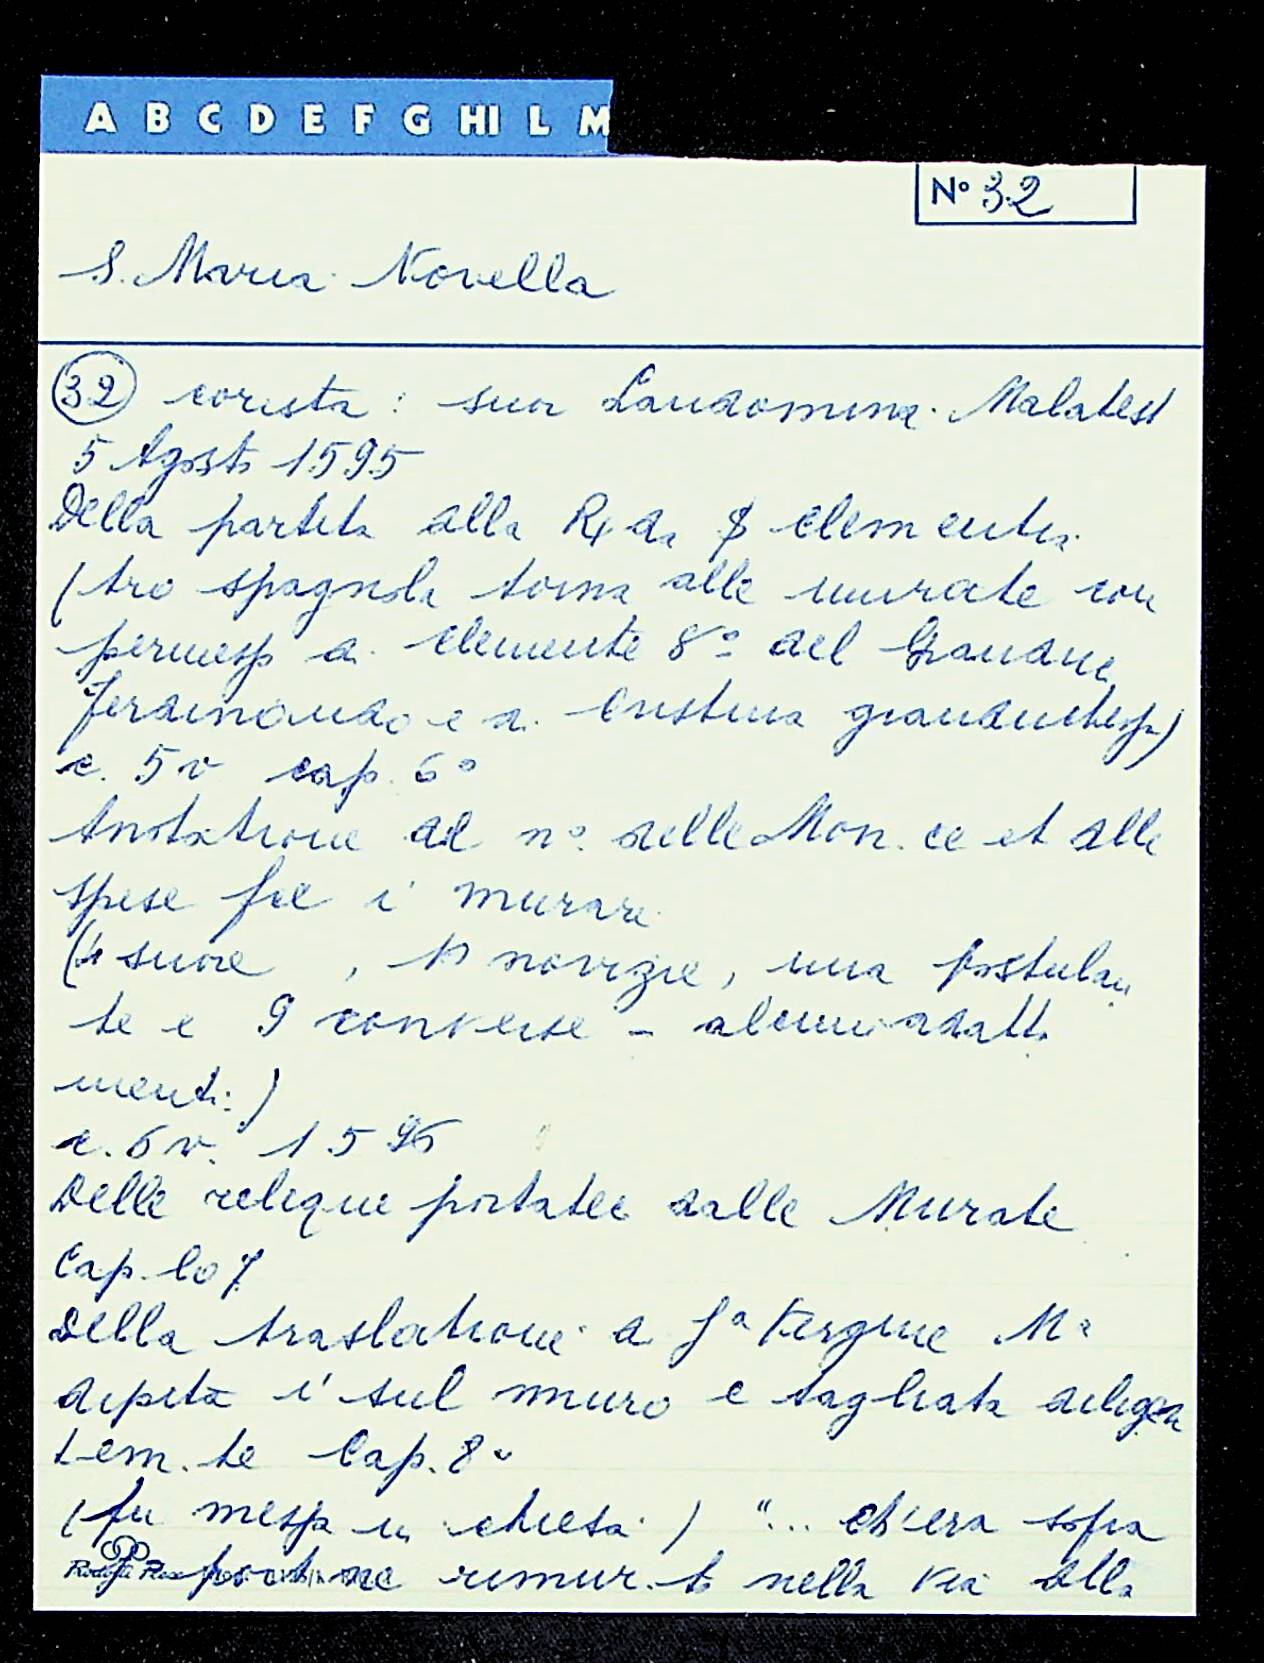 A B C D E F G HI L M
Nº 32
S. Maria Novella
32 corista: suor Laudomina Malatest
5 Agosto 1595
Della partita alla R. da S Clementa
(tro spagnola torna alle murate con
permesso d. Clemente 8º del Granduc
Ferdinando e d. Cristina granduchessa)
c. 5v cap. 6º
Anotatione del nº delle Mon. ce et alle
spese fce i' murare
(4 suore, 10 novizie, una postulan
te e 9 converse - alcuni adatt
menti:)
c. 6v. 1595
Delle relique portatee dalle Murate
Cap. lo 7
Della traslatione d. sª Vergine Mª
dipita i' sul muro e tagliata diligen
tem. te Cap. 8º
(fu messa in chiesa) "... ch'era sopra
portone rimur. to nella via alla